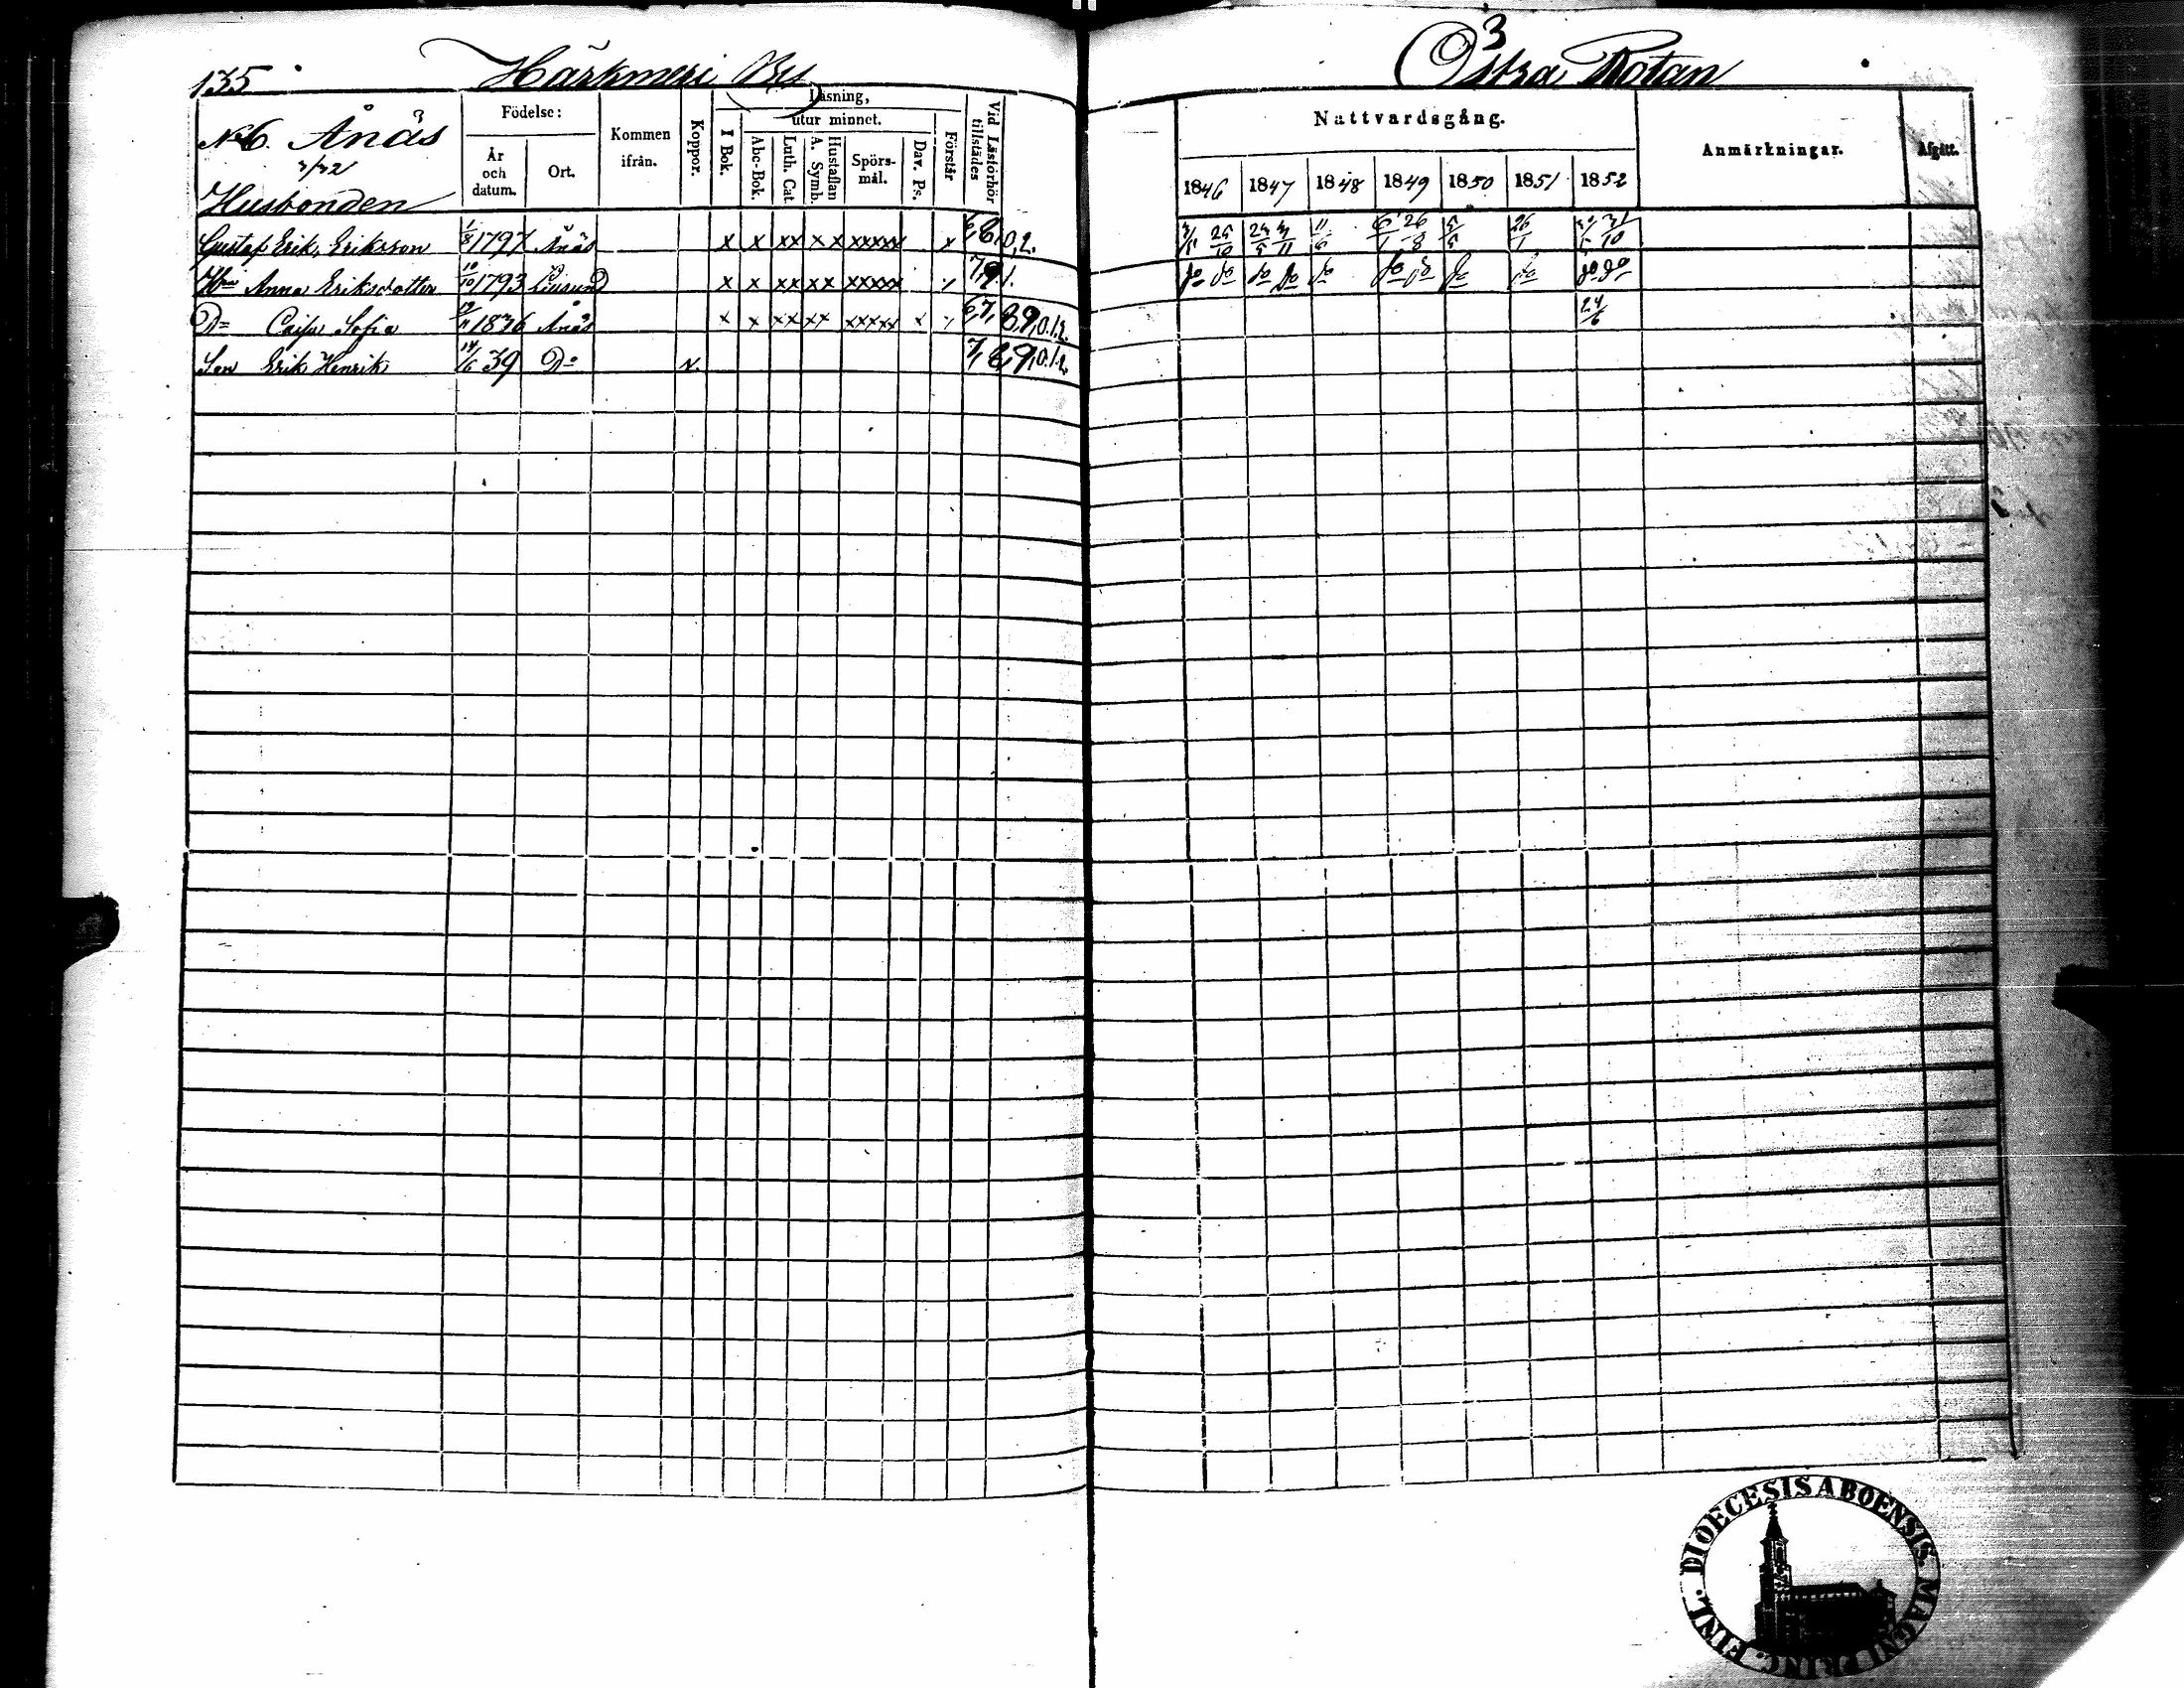 135
Härkmeri By
3
Östra Rotan
No 6. Ånäs
3/32
Husbonden
Födelse:
År och datum.
Ort.
Kommen ifrån.
Koppor.
Läsning,
utur minnet.
I Bok.
Abc-Bok.
Luth. Cat
A. Symb.
Hustaflan
Spörs-mål.
Dav. Ps.
Förstår
Vid Läsförhör tillstädes
Nattvardsgång.
1846 1847 1848 1849 1850 1851 1852
Anmärkningar.
Afgått.
Gustaf Erik Eriksson 1/8 1797 Ånäs x x xx x x xxxxx x 6,8,0,2. 25/10 11/6 6/1 26/8 5/5 26/1 31/10
Hu Anna Eriksdotter 10/10 1793 x x xx xx xxxxx 7,9,1. do do do do do do do do do do
Dr Cajsa Sofia 1836 Ånäs x x xx xx xxxxx x 6,7,8,9,0.1.2. 24/6
Son Erik Henrik 14/6 39 Do v. 7,8,9,0.1.2.
DIOECESIS ABOENSIS. MAGNI PRINC. FINL.